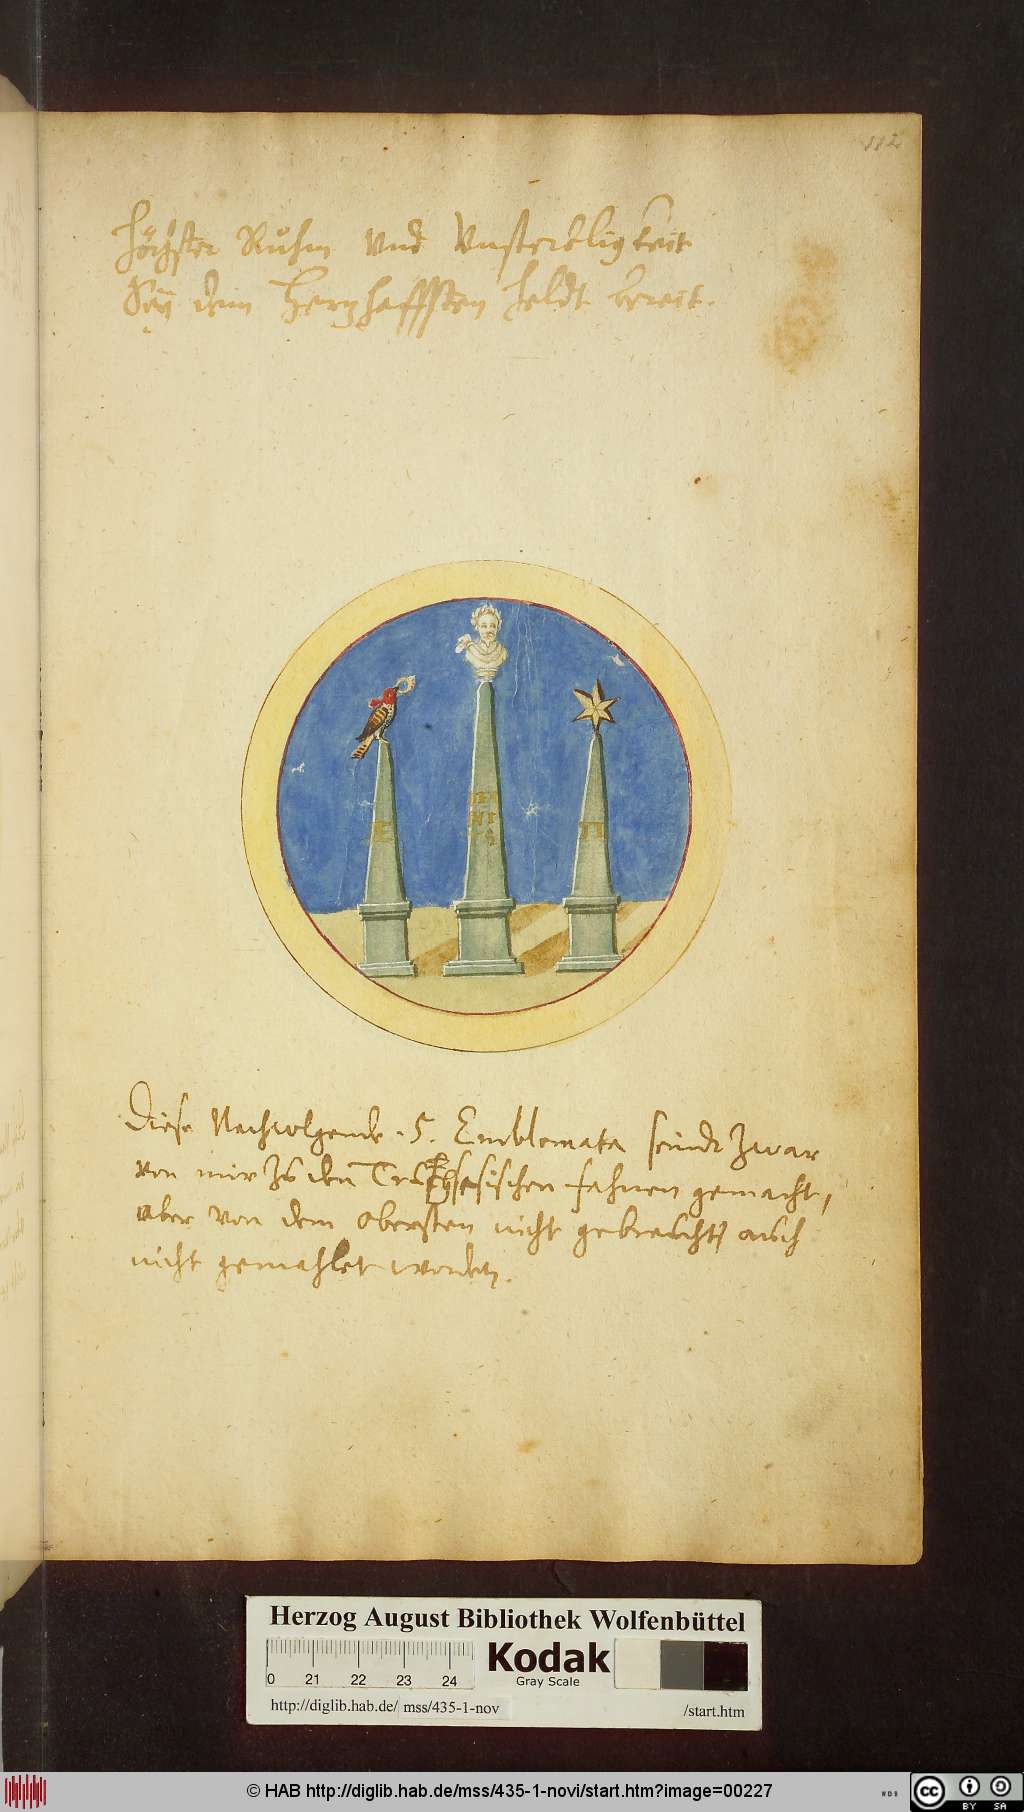 112
Höchster Ruhm Vnd Vnsterbligkeit
Seÿ dem Herzhafften Heldt bereit.
Æ
TI
Diese Nachvolgende .5. Emblemata seindt zwar
von mir Zu den Fahnen gemacht,
aber von dem obersten nicht gebraucht, auch
nicht gemahlet worden.
Herzog August Bibliothek Wolfenbüttel
0 21 22 23 24
Kodak
Gray Scale
http://diglib.hab.de/ mss/435-1-nov /start.htm
© HAB http://diglib.hab.de/mss/435-1-novi/start.htm?image=00227
WDB
cc BY SA